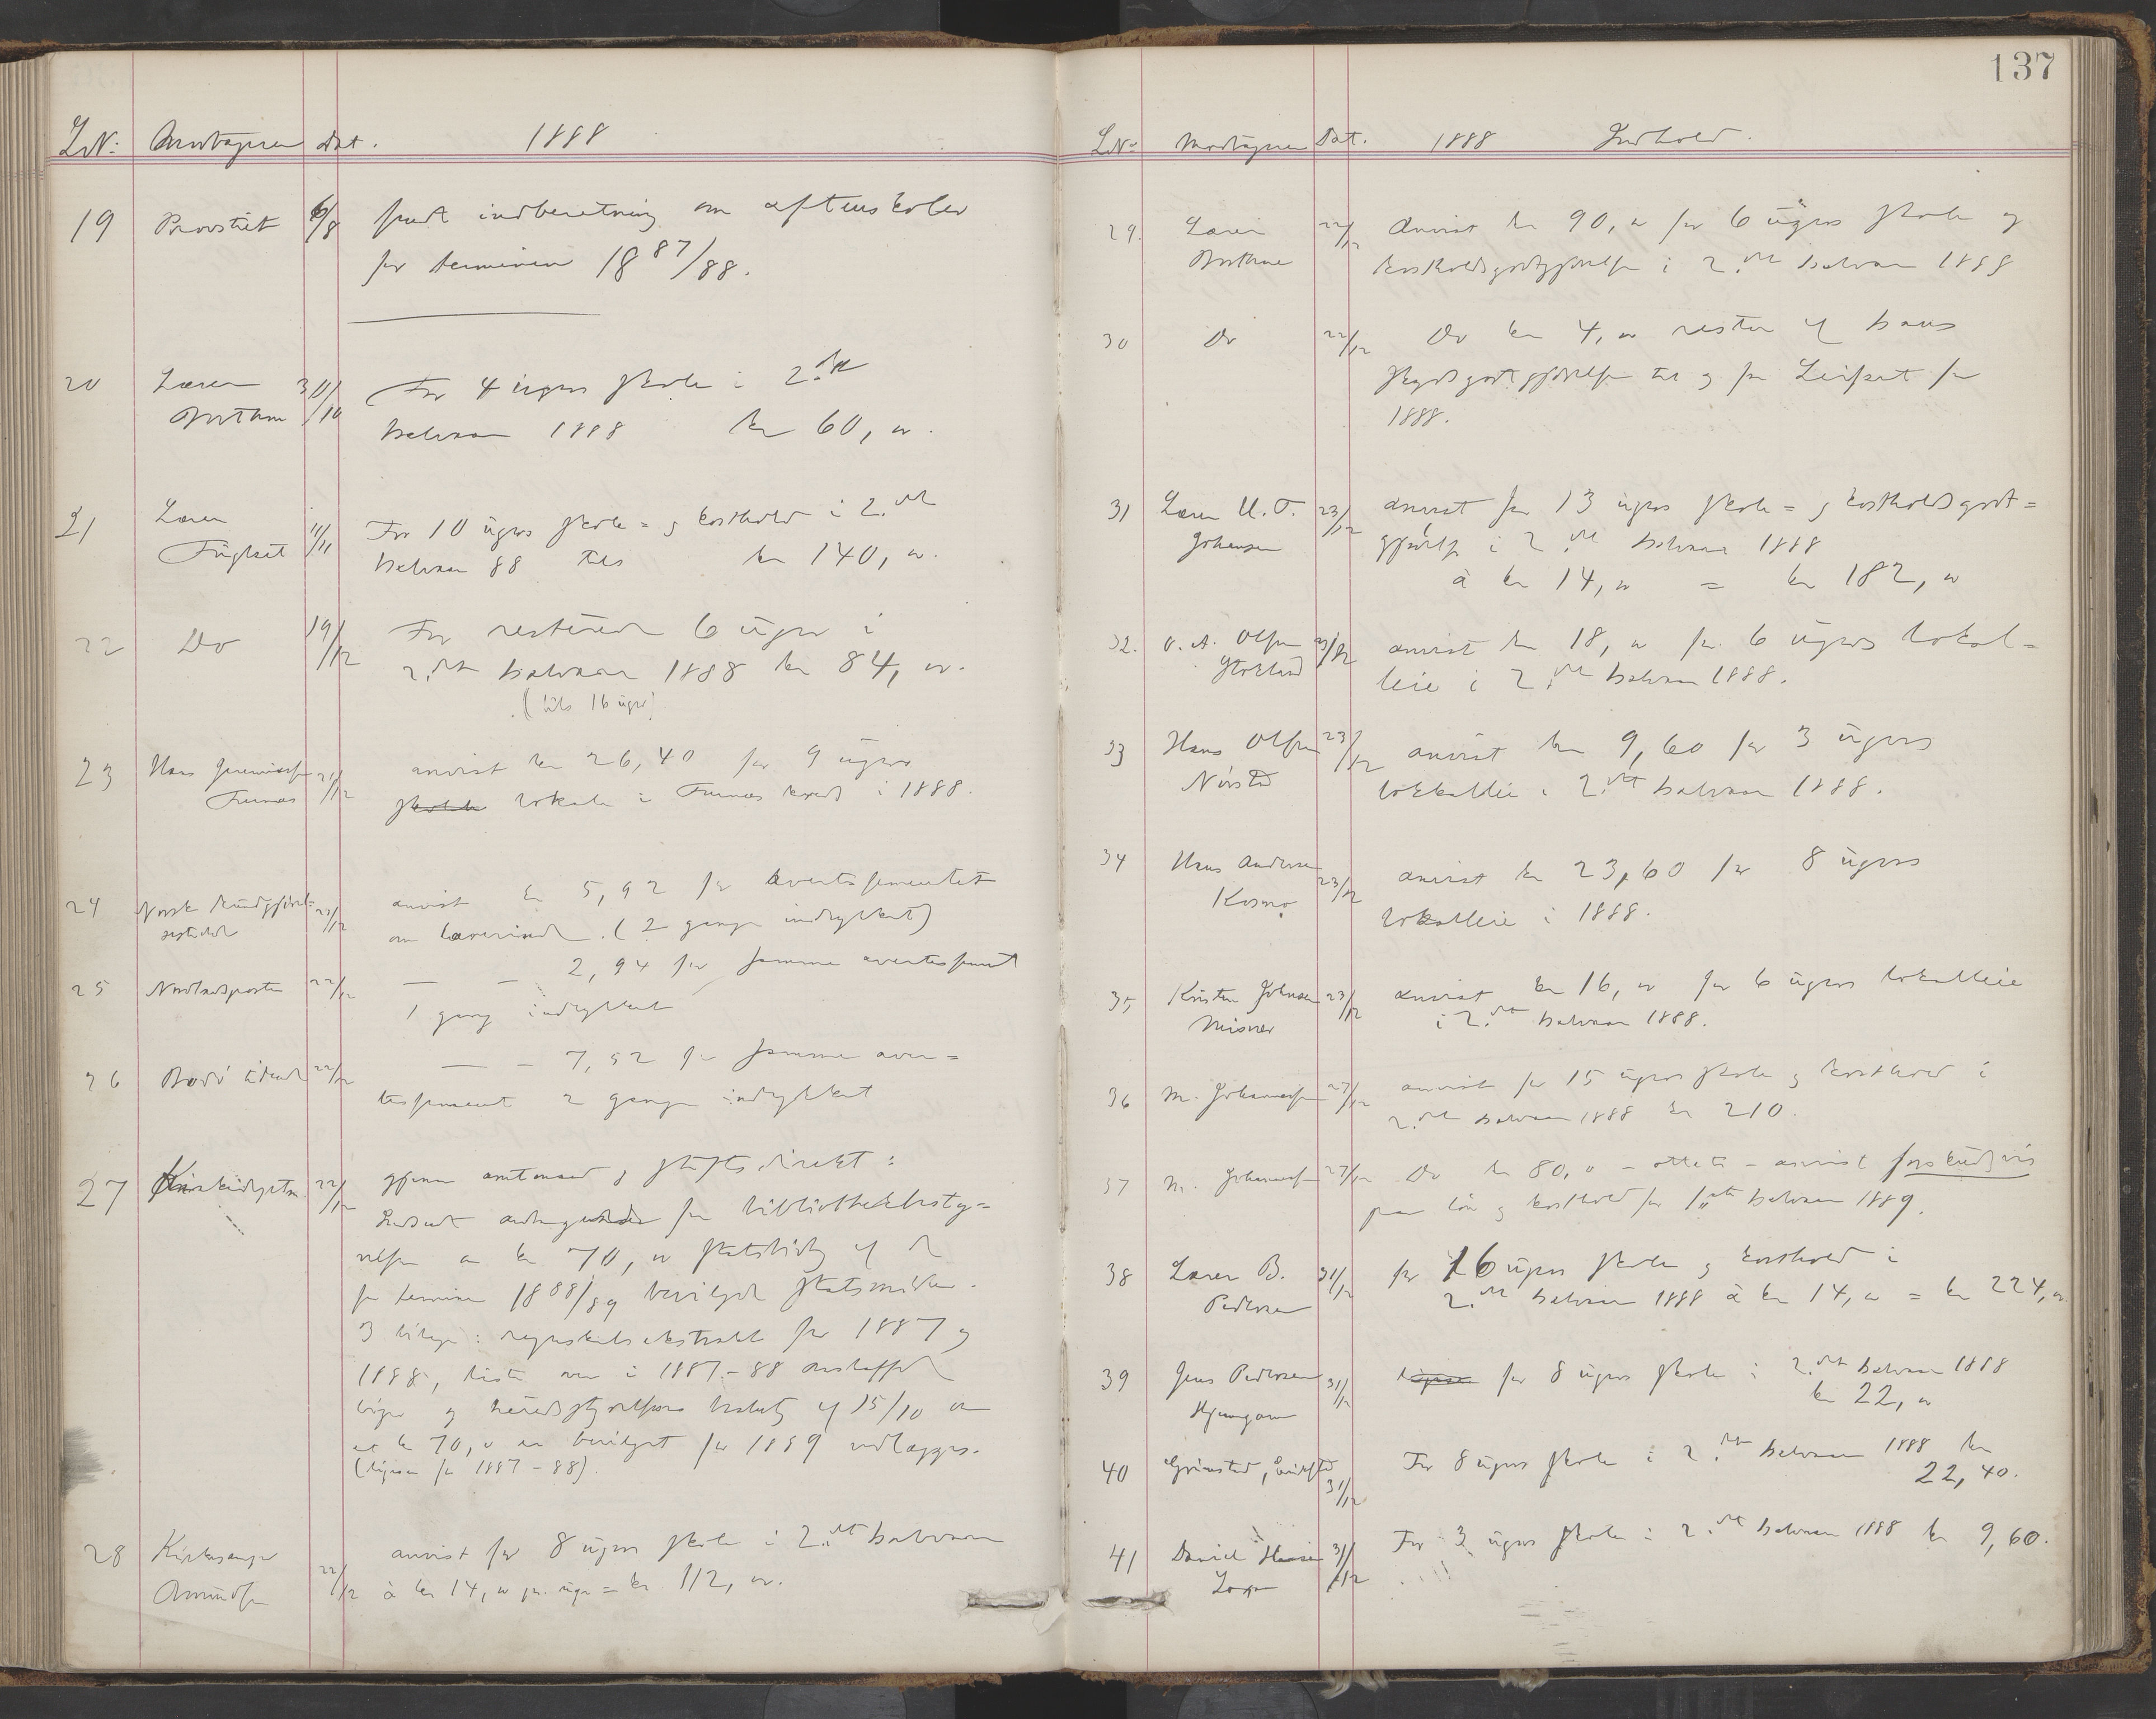 LN: Modtageren Dat. 1888
19 Provstiet 6/8 sendt indberetning om aftenskoler
for terminen 1887/88.
20 Lærer 30/10 For 4 ugers skole i 2.det
halvaar 1888 kr 60, "
21 Lærer 11/11 For 10 ugers skole= og kosthold i 2.det
Fuglset halvaar 88 tils kr 140, "
22 Do 19/12 For resterende 6 uger i
2.det halvaar 1888 kr 84, "
(tils 16 uger)
23 Hans Jeremiassen 21/12 anvist kr 26,40 for 9 ugers
Furnes skole lokale i Furnes kreds i 1888.
24 Norsk Kundgjørel= 22/12 anvist kr 5,92 for avertissementet
sestidende om lærerinde. (2 gange indrykket)
25 Nordlandsposten 22/12 — — 2,94 for samme avertissement
1 gang indrykket
26 Bodø tidende 22/12 — — 7,52 for samme aver=
tissement 2 gange indrykket
27 Kirkedept. 22/12 gjennem amtmand og stiftsdirekt:
Indsendt andragende fra bibliothekbesty=
relsen om kr 70, " statsbidrag af de
for terminen 1888/89 bevilgede statsmidler.
3 bilage: regnskabsekstrakt for 1887 og
1888, liste over i 1887-88 anskaffede
bøger og herredsstyrelsens beslutn. af 15/10 om
at kr 70, " er bevilget for 1889 vedlægges.
(ligesom for 1887-88).
28 Kirkesanger 22/12 anvist for 8 ugers skole i 2.det halvaar
Amundsen à kr 14, " pr. uge = kr. 112, "
137
LN: Modtageren Dat. 1888 Indhold.
29. Lærer 22/12 Anvist kr 90, " for 6 ugers skole og
kostholdsgodtgjørelse i 2.det halvaar 1888
30 Do 22/12 Do kr 4, " resten af hans
skydsgodtgjørelse til og fra Leifset for
1888.
31 Lærer U. T. 23/12 anvist for 13 ugers skole= og kostholdsgodt=
Johansen gjørelse i 2.det halvaar 1888
à kr 14, " = kr 182, "
32. O. A. Olsen 23/12 anvist kr 18, " for 6 ugers lokal=
Stokland leie i 2.det halvaar 1888.
33 Hans Olsen 23/12 anvist kr 9,60 for 3 ugers
lokalleie i 2.det halvaar 1888.
34 Hans Andersen 23/12 anvist kr 23,60 for 8 ugers
Kosmo lokalleie i 1888.
35 Kristen Johnsen 23/12 anvist kr 16, " for 6 ugers lokalleie
Misvær i 2.det halvaar 1888.
36 M. Johannessen 27/12 anvist for 15 ugers skole og kosthold i
2.det halvaar 1888 kr 210.
37 M. Johannessen 27/12 Do kr 80, " - otteti - anvist forskudsvis
paa løn og kosthold for 1ste halvaar 1889.
38 Lærer B. 31/12 for 16 ugers skole og kosthold i
Pedersen 2.det halvaar 1888 à kr 14, " = kr 224, "
39 Jens Pedersen 31/12 for 8 ugers skole i 2.det halvaar 1888
kr 22, "
40 Grimstad, 31/12 For 8 ugers skole i 2.det halvaar 1888 kr
22,40.
41 Daniel Hansen 31/12 For 3 ugers skole i 2.det halvaar 1888 kr 9,60.